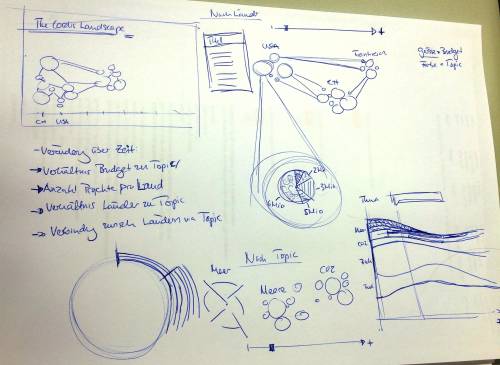 The Cordis Landscape
CH USA
- Veränderung über Zeit
→ Verhältnis Budget zu Topic
→ Anzahl Projekte pro Land
→ Verhältnis Länder zu Topic
→ Verbindung zwischen Ländern via Topic
Nach Land
Titel
- +
USA
Frankreich
CH
Grösse = Budget
Farbe = Topic
2Mio
3Mio
5Mio
6Mio
Thema
Meer
CO2
Nach Topic
Meer
Meere
CO2
- +